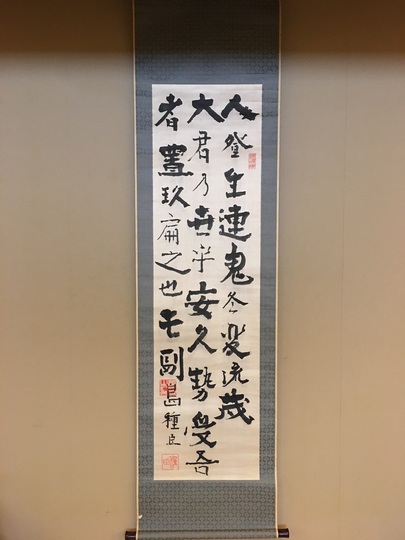 人登生連鬼冬変流茂
大君乃世乎安久勢受吾
者置玖扁之也毛副島種臣